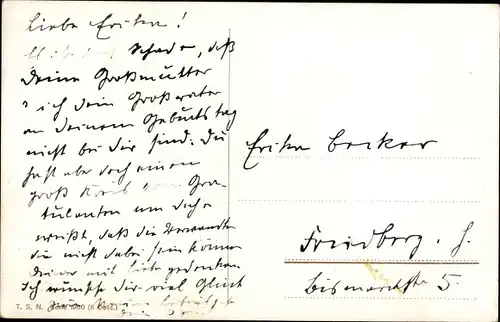 Liebe Erika!
Schade, daß
Deine Großmutter
ich dein Großvater
an deinem Geburtstag
nicht bei dir sind: du
hast aber doch einen
groß Kreis von Gra-
tulanten um dich
weißt, daß die Verwandten
die nicht dabei sein können
Deiner mit Liebe gedenken.
Ich wünsche dir viel Glück
Erika Becker
Friedberg i. H.
Bismarckstr 5.
T. S. N.